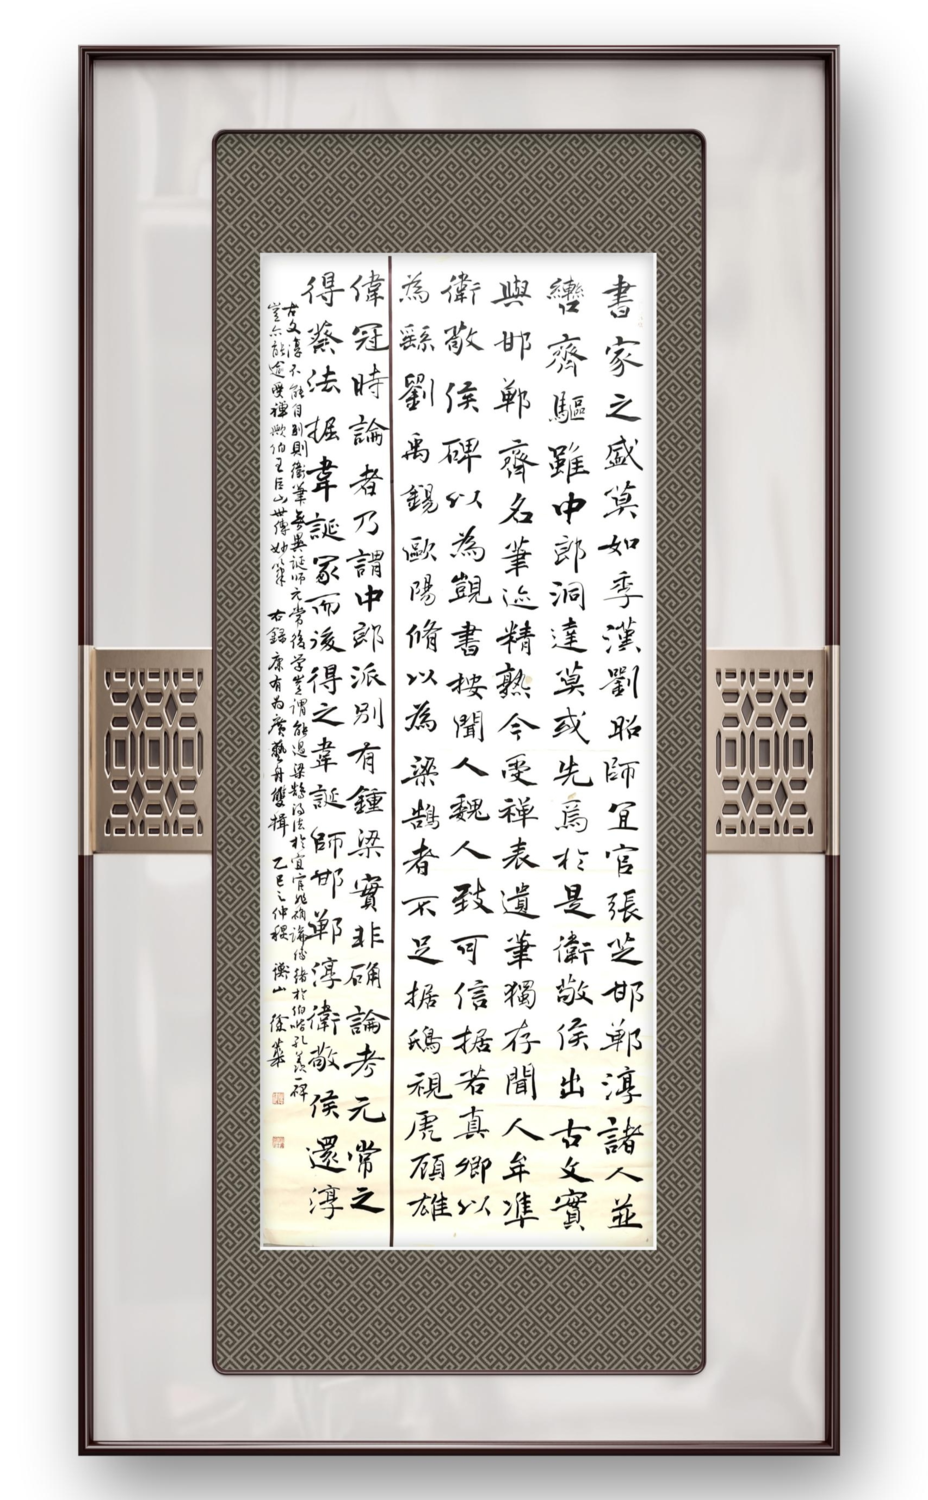 書家之盛莫如季漢劉昭師宜官張芝邯鄲淳諸人並
轡齊驅雖中郎洞達莫或先焉於是衛敬侯出古文實
與邯鄲齊名筆迹精熟今受禪表遺筆獨存聞人牟準
衛敬侯碑以為覬書按聞人魏人致可信據若真卿以
為繇劉禹錫歐陽脩以為梁鵠者不足據鴟視虎顧雄
偉冠時論者乃謂中郎派別有鍾梁實非确論考元常之
得蔡法掘韋誕冢而後得之韋誕師邯鄲淳衛敬侯還淳
古文淳不能自別則衛筆無異誕師元常後学豈謂能過梁鵠得法於宜官非确論緒於伯喈孔羨一碑
豈亦能迨受禪歟伯玉巨山世傳妙筆 右錄康有為廣藝舟雙楫 乙巳之仲穐 山 徐